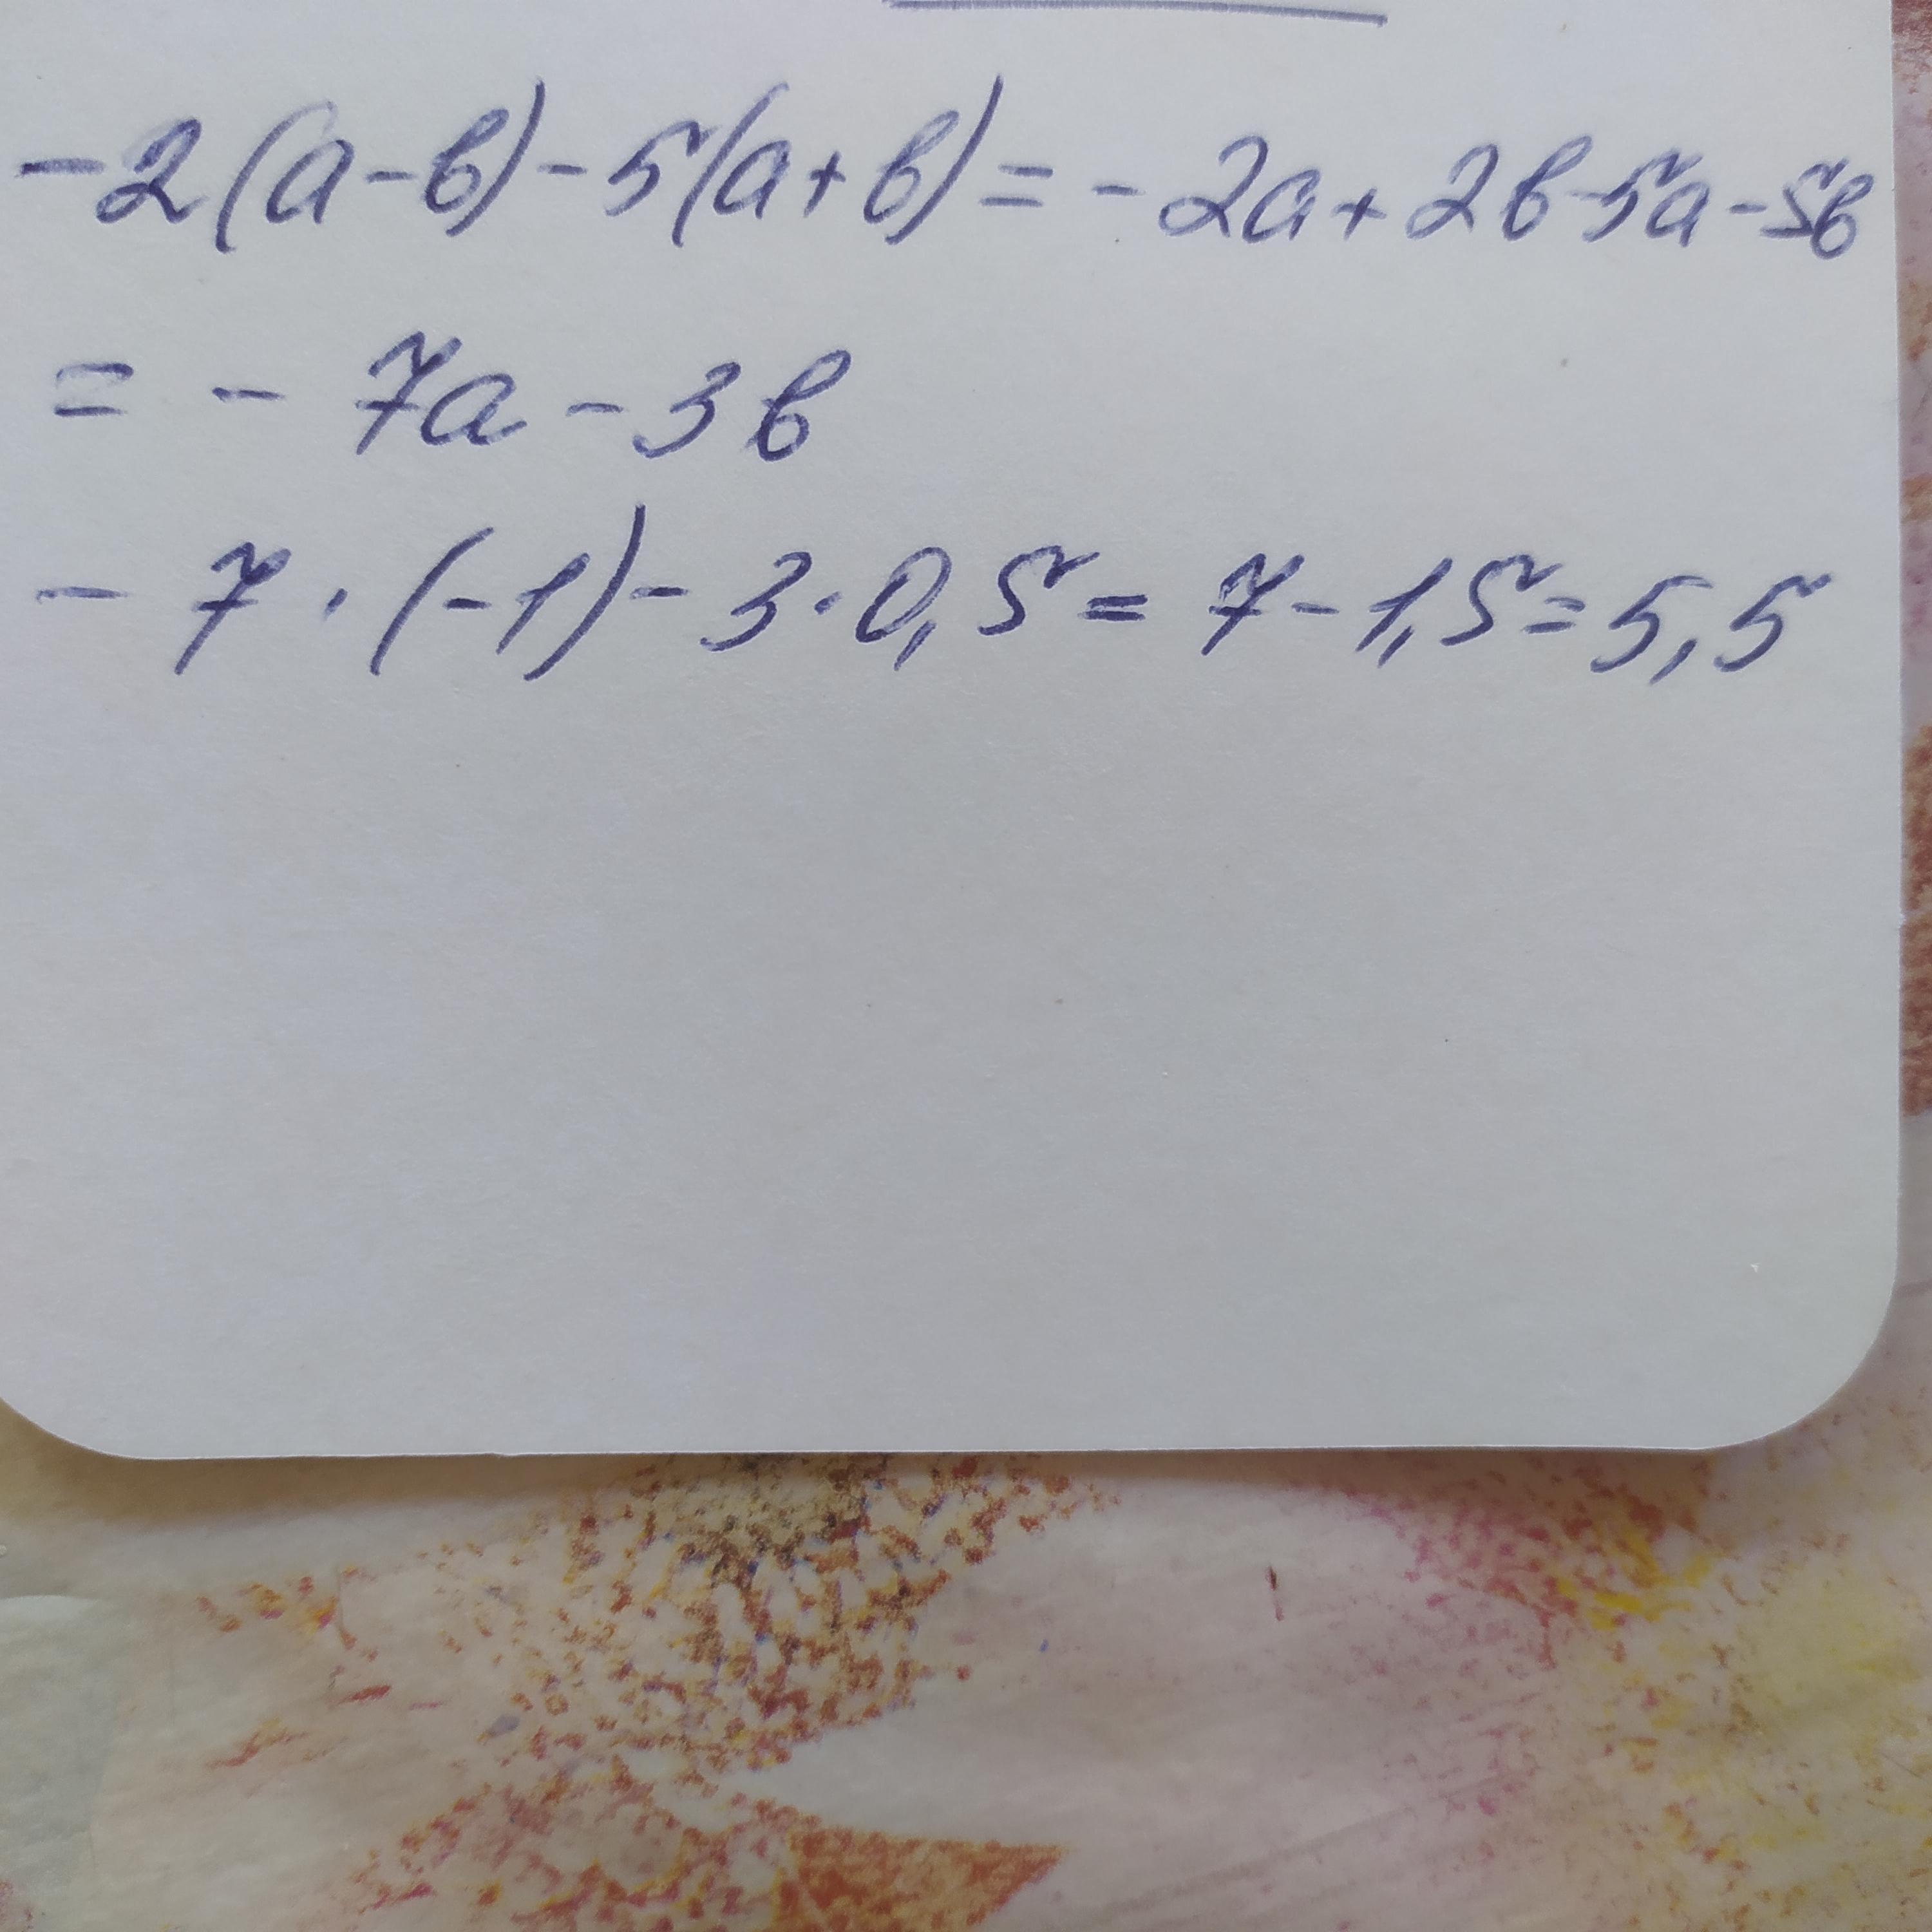 -2(a-b)-5(a+b)=-2a+2b-5a-5b
=-7a-3b
-7·(-1)-3·0,5=7-1,5=5,5